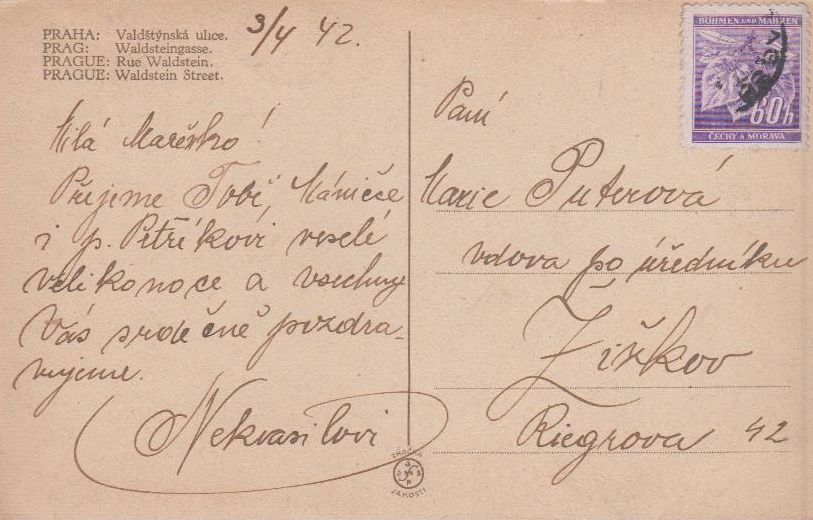 PRAHA: Valdštýnská ulice.
PRAG: Waldsteingasse.
PRAGUE: Rue Waldstein.
PRAGUE: Waldstein Street.
3/4 42.
Milá Mařěnko!
Přejeme Tobě, Mániče
i p. Petříkovi veselé
velikonoce a všechny
Vás srdečně pozdra-
vujeme.
Nekvasilovi
BÖHMEN UND MÄHREN
60h
ČECHY A MORAVA
Paní
Marie Puterová
vdova po úředníku
Žižkov
Riegrova 42
ZNAČKA
JAKOSTI